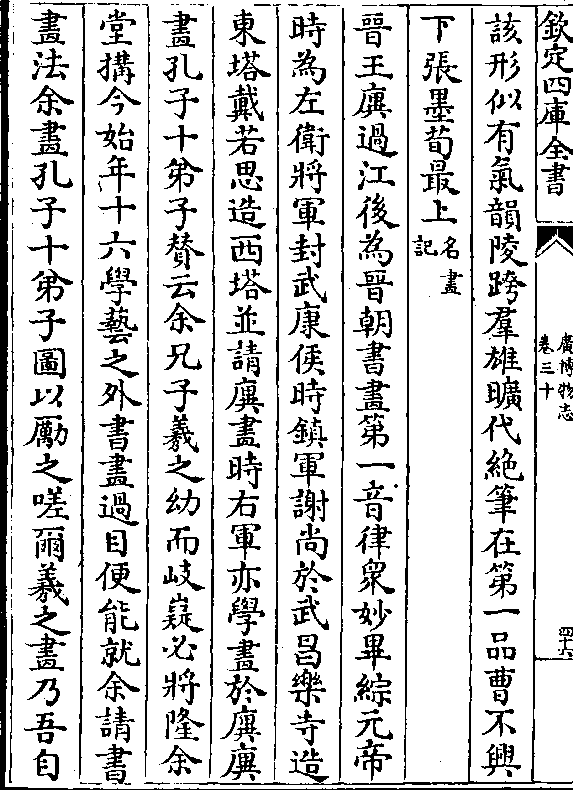 欽定四庫全書
廣博物志
卷三十
四十六
該形似有氣韻陵跨羣雄曠代絶筆在第一品曹不興
下張墨荀最上名畫
記
晉王廙過江後為晉朝書畫第一音律衆妙畢綜元帝
時為左衛將軍封武康侯時鎮軍謝尚於武昌樂寺造
東塔戴若思造西塔並請廙畫時右軍亦學畫於廙廙
畫孔子十弟子贊云余兄子羲之幼而岐嶷必將隆余
堂搆今始年十六學藝之外書畫過目便能就余請書
畫法余畫孔子十弟子圖以勵之嗟爾羲之畫乃吾自